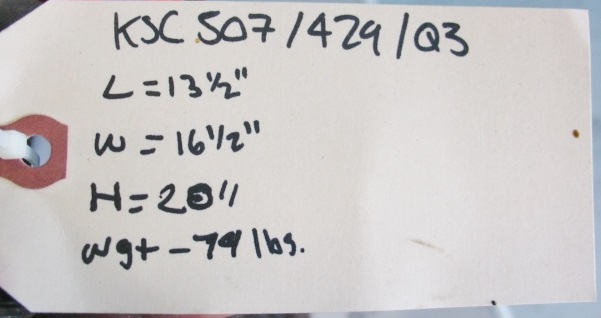 KSC 507/429/Q3
L = 13 1/2"
W = 16 1/2"
H = 20"
wgt - 79 lbs.